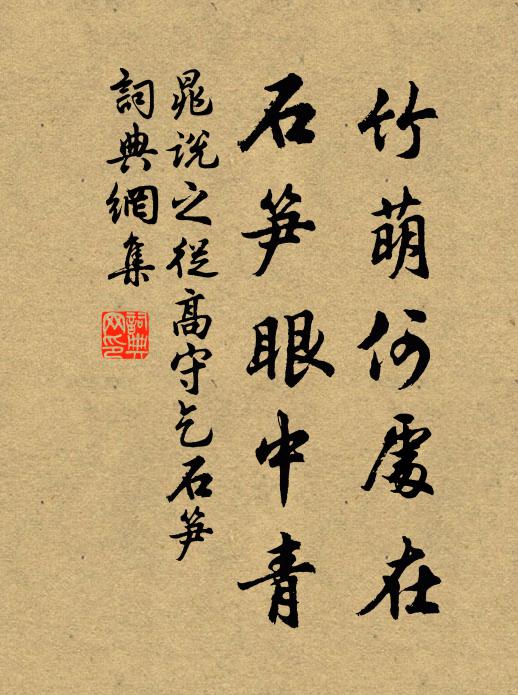 竹萌何處在
石笋眼中青
晁説之從高守乞石笋
詞典網集
詞典网印